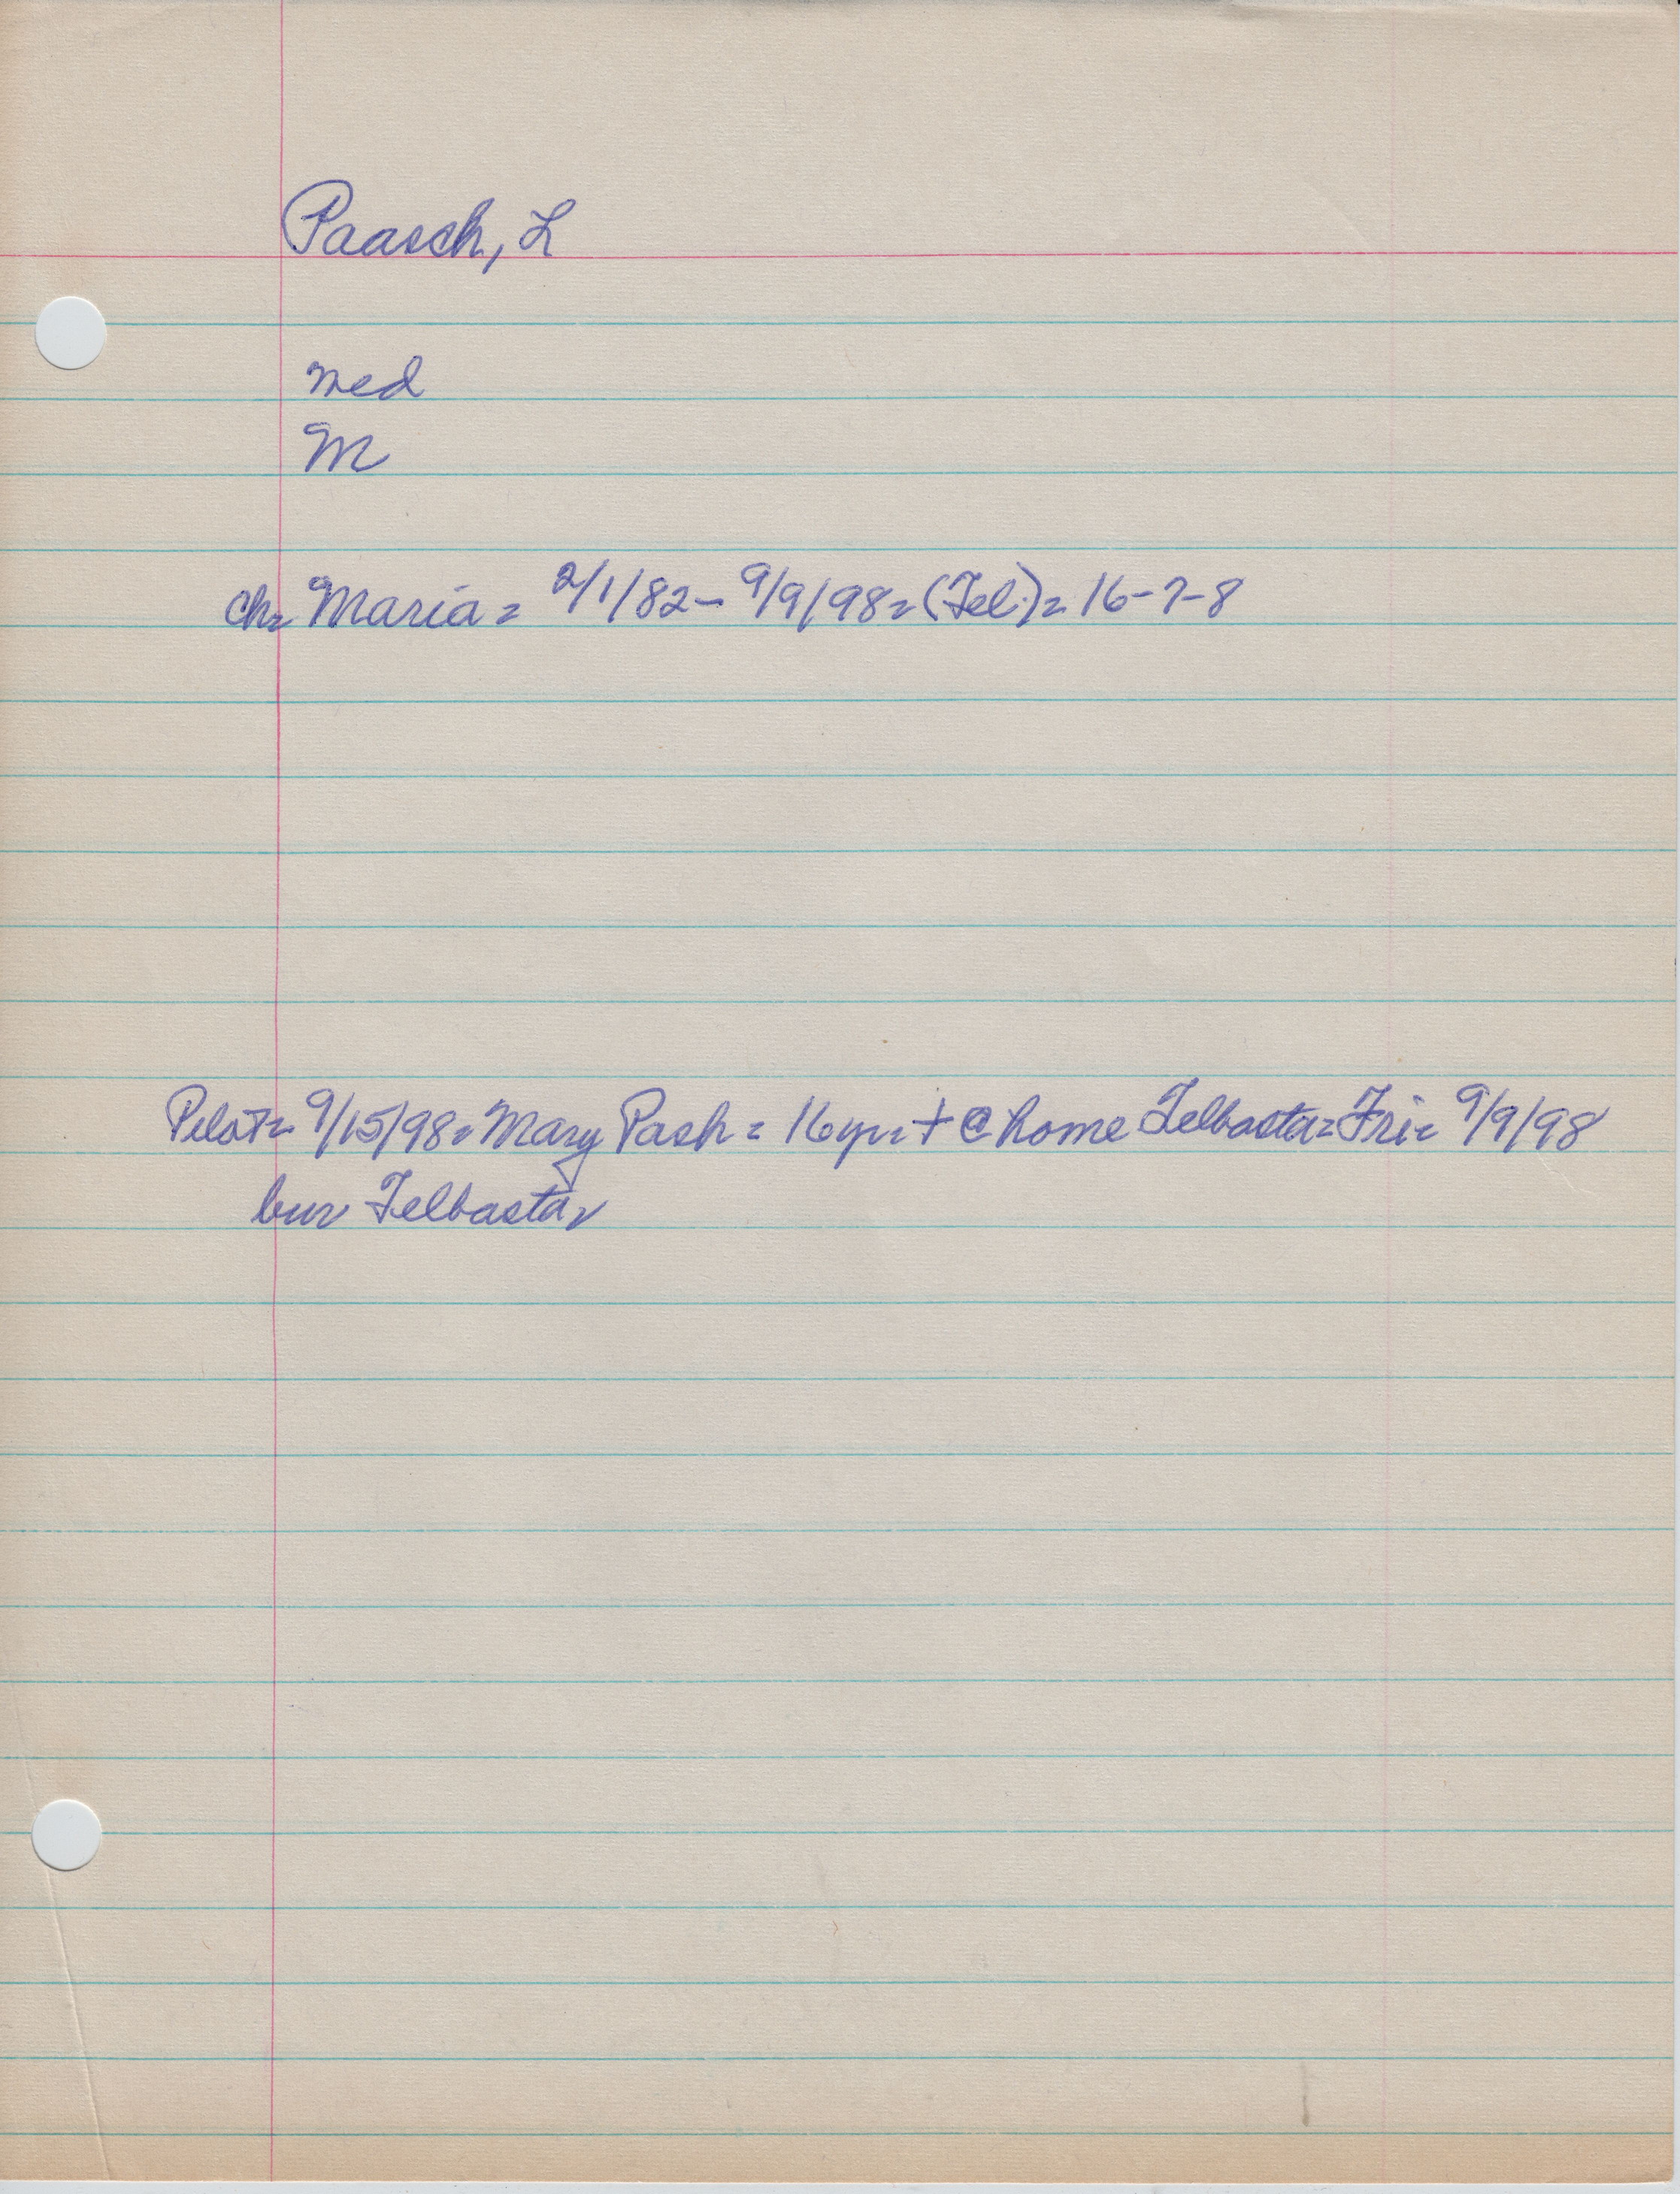 Paasch, L
med
M
ch= Maria = 2/1/82 - 9/9/98 = (Tel.) = 16-7-8
Pilot = 9/15/98 = Mary Pash = 16yr = + @ home Telbasta = Fri = 9/9/98
bur Telbasta =